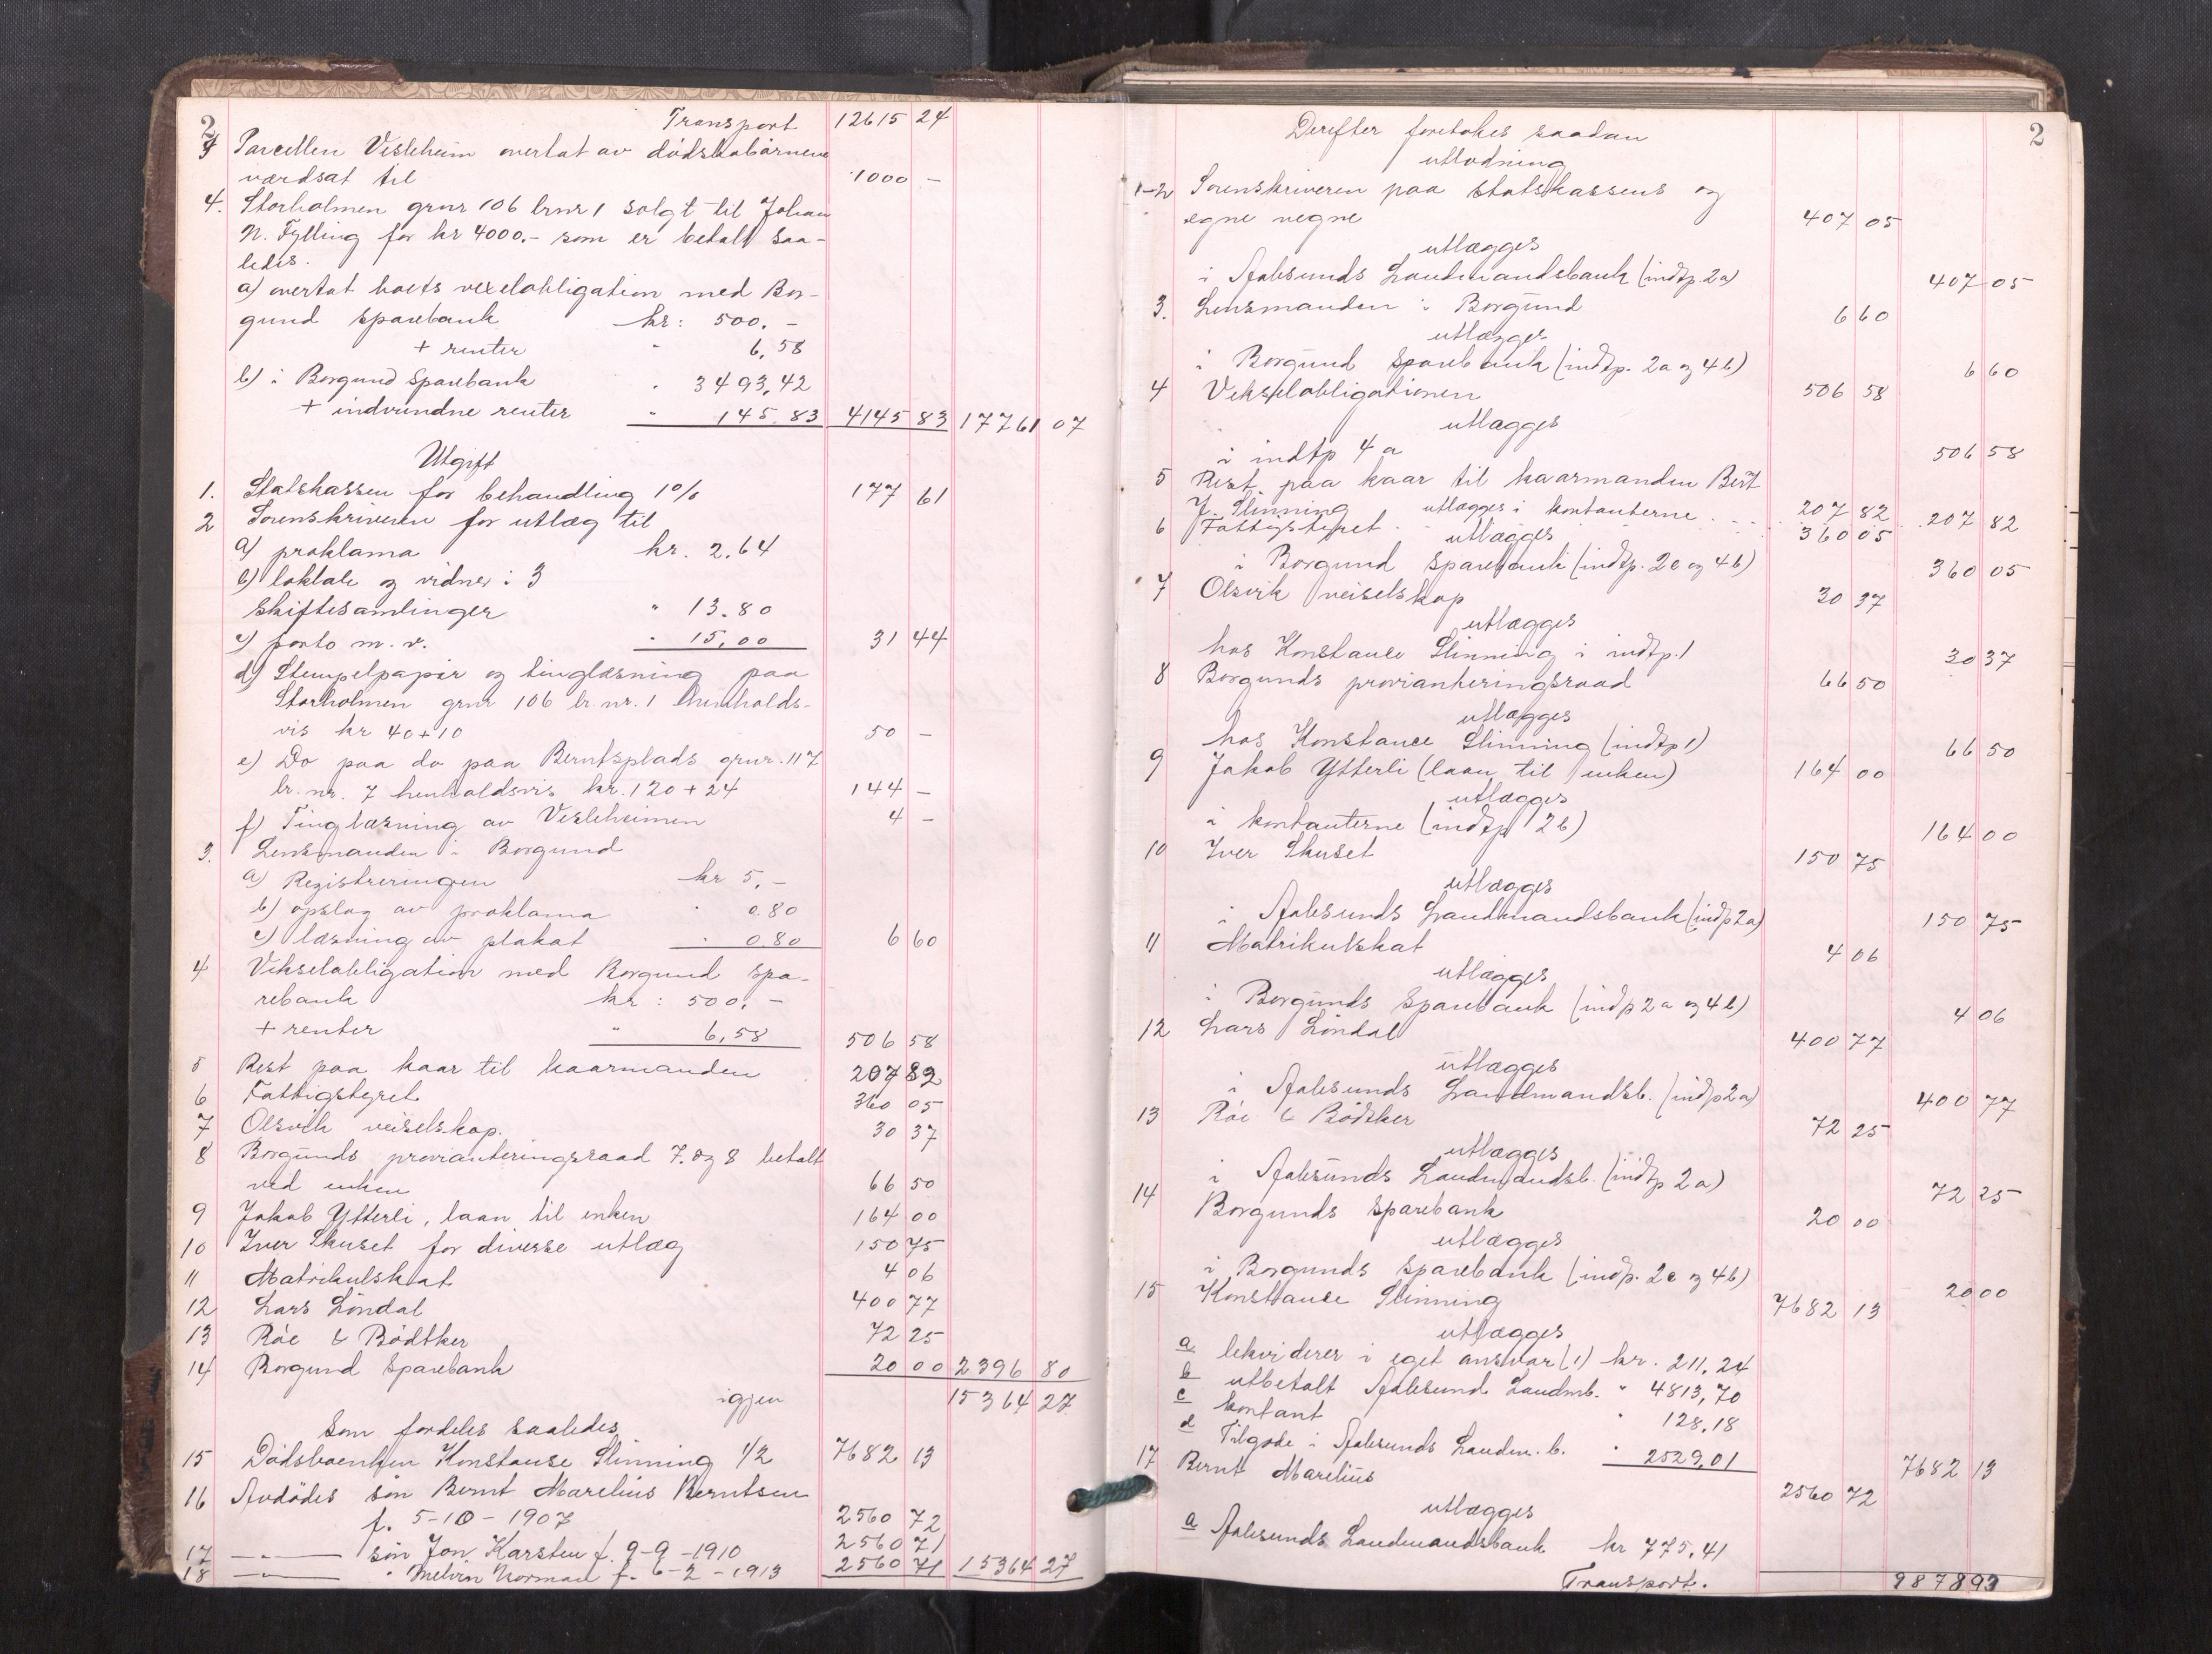 2
Transport 12615 24
3 Parcellen Vesleheim overtat av dödsbobörnene
værdsat til 1000 -
4. Storholmen grnr 106 brnr 1 solgt til Johan
N. Fylling for kr 4000.- som er betalt saa-
ledes.
a) overtat boets vexelobligation med Bor-
gund sparebank kr: 500. -
+ renter " 6,58
b) i Borgund Sparebank " 3493,42
+ indvundne renter " 145,83 4145 83 17761 07
Utgift
1. Statskassen for behandling 1% 177 61
2 Sorenskriveren for utlæg til
a) proklama kr. 2.64
b) loktale og vidner i 3
skiftesamlinger " 13.80
c) porto m. v. " 15,00 31 44
d) Stempelpapir og tinglæsning paa
Storholmen grnr 106 br.nr. 1 henholds-
vis kr 40+10 50 -
e) Do paa do paa Berntsplads grnr. 117
br. nr. 7 henholdsvis kr. 120 + 24 144 -
f) Tinglæsning av Vesleheimen 4 -
3. Lensmanden i Borgund
a) Registreringen kr 5,-
b) opslag av proklama " 0.80
c) læsning av plakat " 0.80 6 60
4 Vekselobligation med Borgund spa-
rebank kr: 500, -
+ renter " 6,58 506 58
5 Rest paa kaar til kaarmanden 207 82
6 Fattigstyret 360 05
7 Olsvik veiselskap. 30 37
8 Borgunds provianteringsraad 7. og 8 betalt
ved enken 66 50
9 Jakob Ytterli, laan til enken 164 00
10 Iver Skuset for diverse utlæg 150 75
11 Matrikulskat 4 06
12 Lars Löndal 400 77
13 Röe & Bödtker 72 25
14 Borgund Sparebank 20 00 2396 80
igjen 15364 27
Som fordeles saaledes
15 Dödsboenken Konstanse Slinning 1/2 7682 13
16 Avdödes sön Bernt Marelius Berntsen
f. 5-10-1907 2560 72
17 —"— sön Jon Karsten f. 9-9-1910 2560 71
18 —"— " Melvin Norman f. 6-2-1913 2560 71 15364 27
2
Derefter foretokes saadan
utlodning
1-2 Sorenskriveren paa statskassens og
egne vegne 407 05
utlægges
i Aalesunds Landmandsbank (indtp. 2a) 407 05
3. Lensmanden i Borgund 6 60
utlægges
i Borgund Sparebank (indtp. 2a og 4b) 6 60
4 Vekselobligationen 506 58
utlægges
i indtp 4 a 506 58
5 Rest paa kaar til kaarmanden Bert
J. Slinning utlægges i kontanterne 207 82 207 82
6 Fattigstyret 360 05
utlægges
i Borgund Sparebank (indtp. 2c og 4b) 360 05
7 Olsvik veiselskap 30 37
utlægges
hos Konstanse Slinning i indtp. 1 30 37
8 Borgunds provianteringsraad 66 50
utlægges
hos Konstance Slinning (indtp 1) 66 50
9 Jakob Ytterli (laan til enken) 164 00
utlægges
i kontanterne (indtp 2b) 164 00
10 Iver Skuset 150 75
utlægges
i Aalesunds Landmandsbank (indp 2a) 150 75
11 Matrikulskat 4 06
utlægges
i Borgunds Sparebank (indp 2a og 4b) 4 06
12 Lars Löndal 400 77
utlægges
i Aalesunds Landmandsb. (indp 2a) 400 77
13 Röe & Bödtker 72 25
utlægges
i Aalesunds Landmandsb. (indtp 2a) 72 25
14 Borgunds Sparebank 20 00
utlægges
i Borgunds Sparebank (indp. 2c og 4b) 20 00
15 Konstanse Slinning 7682 13
utlægges
a lekviderer i eget ansvar (1) kr. 211,24
b utbetalt Aalesund Landmb. " 4813,70
c kontant " 128,18
d Tilgode i Aalesunds Landm. b. " 2529,01 7682 13
17 Bernt Marelius 2560 72
utlægges
a Aalesunds Landmandsbank kr 775,41
Transport. 9878 93